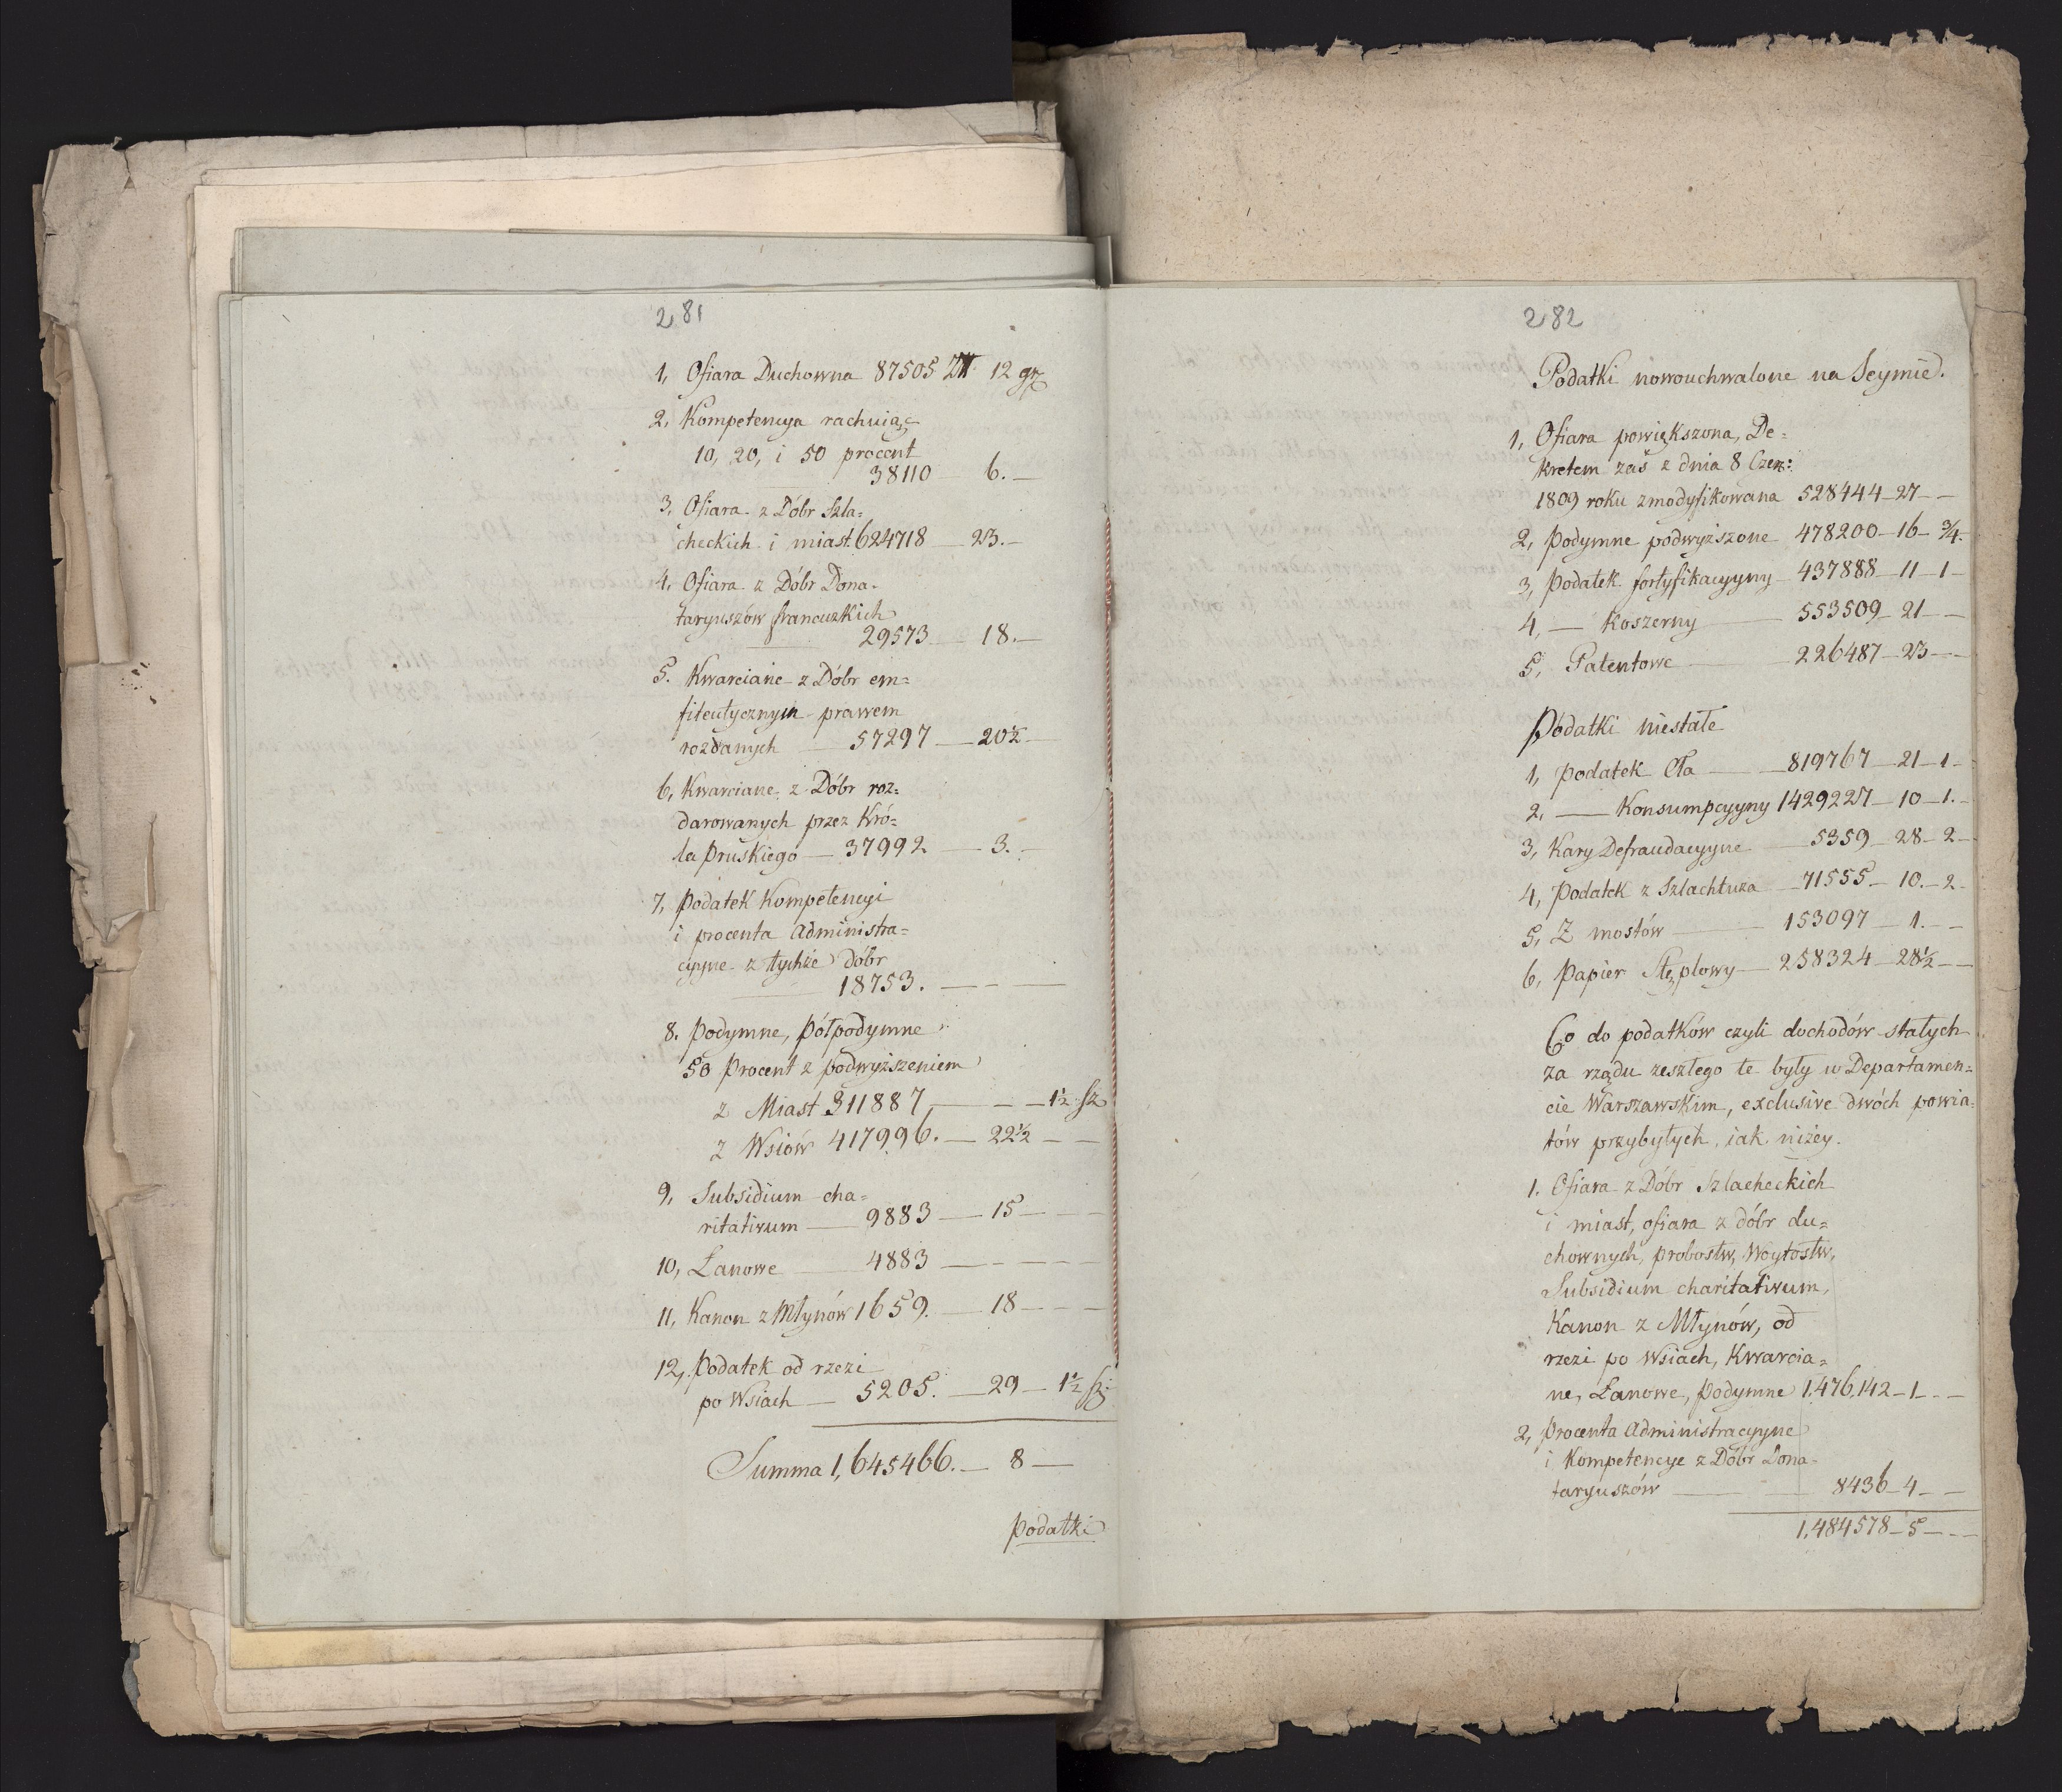 281
1, Ofiara Duchowna 87505 Zł 12 gr
2, Kompetencya rachuiąc
10, 20, i 50 procent
38110 — 6. —
3, Ofiara z Dóbr Szla=
checkich i miast. 624718 — 23. —
4, Ofiara z Dóbr Dona-
taryuszów francuzkich
29573 — 18. —
5. Kwarciane z Dóbr em=
fiteutycznym prawem
rozdanych — 57297 — 20½ —
6, Kwarciane z Dóbr roz=
darowanych przez Kró=
la Pruskiego — 37992 — 3. —
7, Podatek Kompetencyi
i procenta Administra=
cyjne z tychże dóbr
18753. — — —
8. Podymne, Półpodymne
50 Procent z podwyższeniem
z Miast 311887, — — — 1½ sz
z Wsiów 417996. — 22½ — —
9, Subsidium cha=
ritativum — 9883 — 15 — — —
10, Łanowe — 4883 — — — — —
11, Kanon z Młynów 1659. — 18 — — —
12, Podatek od rzezi
po Wsiach — 5205. — 29 — 1½ sz
Summa 1,645466. — 8 —
Podatki
282
Podatki nowouchwalone na Seymie.
1, Ofiara powiększona, De=
kretem zaś z dnia 8 Czer:
1809 roku zmodyfikowana 528444 — 27 — —
2, Podymne podwyższone 478200 — 16 — ¾.
3, Podatek fortyfikacyyny — 437888 — 11 — 1 —
4, — Koszerny — 553509 — 21 — —
5, Patentowe — 226487 — 23 — —
Podatki niestałe
1, Podatek Cła — 819767 — 21 — 1 —
2, — Konsumpcyyny 1429227 — 10 — 1. —
3, Kary Defraudacyyne — 5359 — 28 — 2 —
4, Podatek z Szlachtuza — 71555 — 10. — 2 —
5, Z mostów — 153097 — 1. — —
6, Papier Stęplowy — 258324 — 28½ — —
Co do podatków czyli dochodów stałych
za rządu zeszłego te były w Departamen=
cie Warszawskim, exclusive dwóch powia=
tów przybyłych, iak niżey.
1. Ofiara z Dóbr Szlacheckich
i miast, ofiara z dóbr du=
chownych, probostw, Woytostw,
Subsidium charitativum,
Kanon z Młynów, od
rzezi po Wsiach, Kwarcia=
ne, Łanowe, Podymne 1,476,142 — 1 — — —
2, Procenta Administracyyne
i Kompetencye z Dóbr Dona-
taryuszów — 8436 — 4 — —
1,484578 — 5 — — —